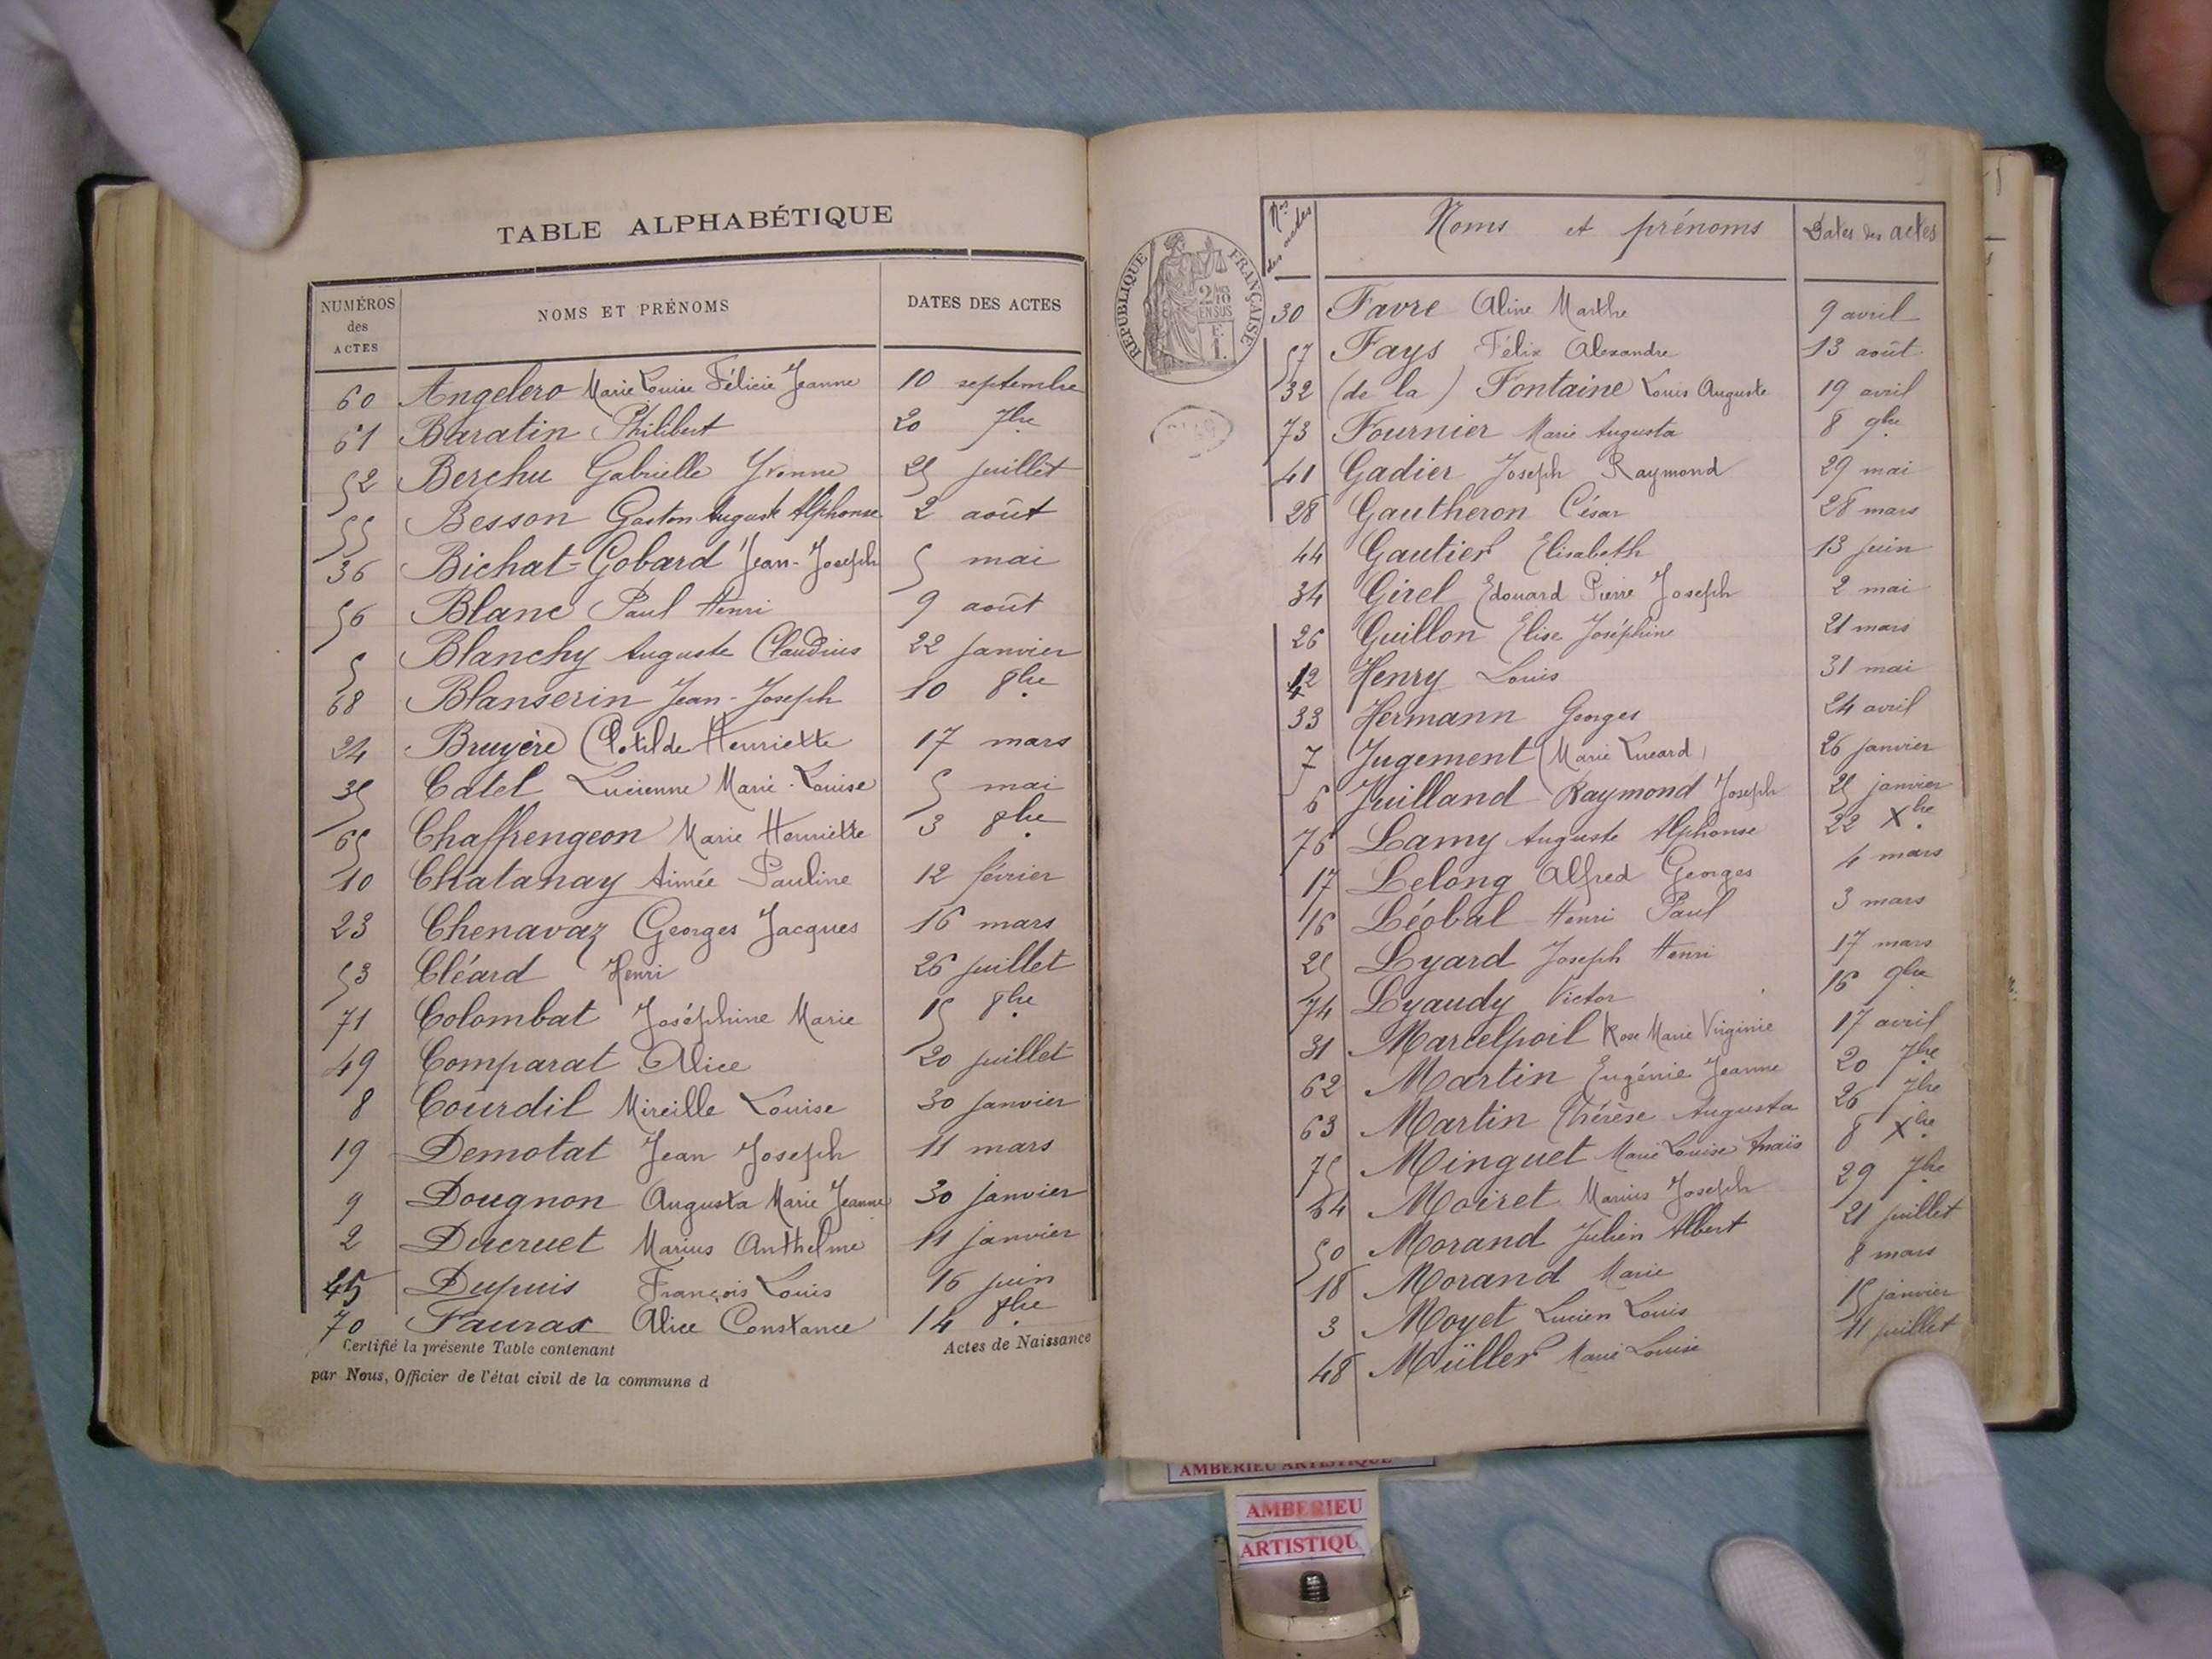 TABLE ALPHABÉTIQUE
NUMÉROS des ACTES NOMS ET PRÉNOMS DATES DES ACTES
60 Angelero Marie Louise Félicie Jeanne 10 septembre
61 Baratin Philibert 20 7bre
52 Berchu Gabrielle Yvonne 25 juillet
55 Besson Gaston Auguste Alphonse 2 août
36 Bichat-Gobard Jean-Joseph 5 mai
56 Blanc Paul Henri 9 août
5 Blanchy Auguste Claudius 22 janvier
68 Blanserin Jean-Joseph 10 8bre
24 Bruyère Clotilde Henriette 17 mars
35 Catel Lucienne Marie-Louise 5 mai
65 Chaffrengeon Marie Henriette 3 8bre
10 Chatanay Aimée Pauline 12 février
23 Chenavaz Georges Jacques 16 mars
53 Cléard Henri 26 juillet
71 Colombat Joséphine Marie 15 8bre
49 Comparat Alice 20 juillet
8 Courdil Mireille Louise 30 janvier
19 Demotat Jean Joseph 11 mars
9 Dougnon Augusta Marie Jeanne 30 janvier
2 Ducruet Marius Anthelme 11 janvier
45 Dupuis François Louis 16 juin
70 Fauras Alice Constance 14 8bre
Certifié la présente Table contenant Actes de Naissance
par Nous, Officier de l'état civil de la commune d
RÉPUBLIQUE FRANÇAISE
2/10
EN SUS
F.
1.
Nos des actes Noms et prénoms Dates des actes
30 Favre Aline Marthe 9 avril
57 Fays Félix Alexandre 13 août
32 (de la) Fontaine Louis Auguste 19 avril
73 Fournier Marie Augusta 8 9bre
41 Gadier Joseph Raymond 29 mai
28 Gautheron César 28 mars
44 Gautier Elisabeth 13 juin
34 Girel Edouard Pierre Joseph 2 mai
26 Guillon Elise Joséphine 21 mars
42 Henry Louis 31 mai
33 Hermann Georges 24 avril
7 Jugement (Marie Lucard) 26 janvier
6 Juilland Raymond Joseph 25 janvier
76 Lamy Auguste Alphonse 22 Xbre
17 Lelong Alfred Georges 4 mars
16 Léobal Henri Paul 3 mars
25 Lyard Joseph Henri 17 mars
74 Lyaudy Victor 16 9bre
31 Marcelpoil Rose Marie Virginie 17 avril
62 Martin Eugénie Jeanne 20 7bre
63 Martin Thérèse Augusta 26 7bre
75 Minguet Marie Louise Anaïs 8 Xbre
64 Moiret Marius Joseph 29 7bre
50 Morand Julien Albert 21 juillet
18 Morand Marie 8 mars
3 Moyet Lucien Louis 15 janvier
48 Müller Marie Louise 11 juillet
AMBERIEU ARTISTIQUE
AMBERIEU
ARTISTIQU